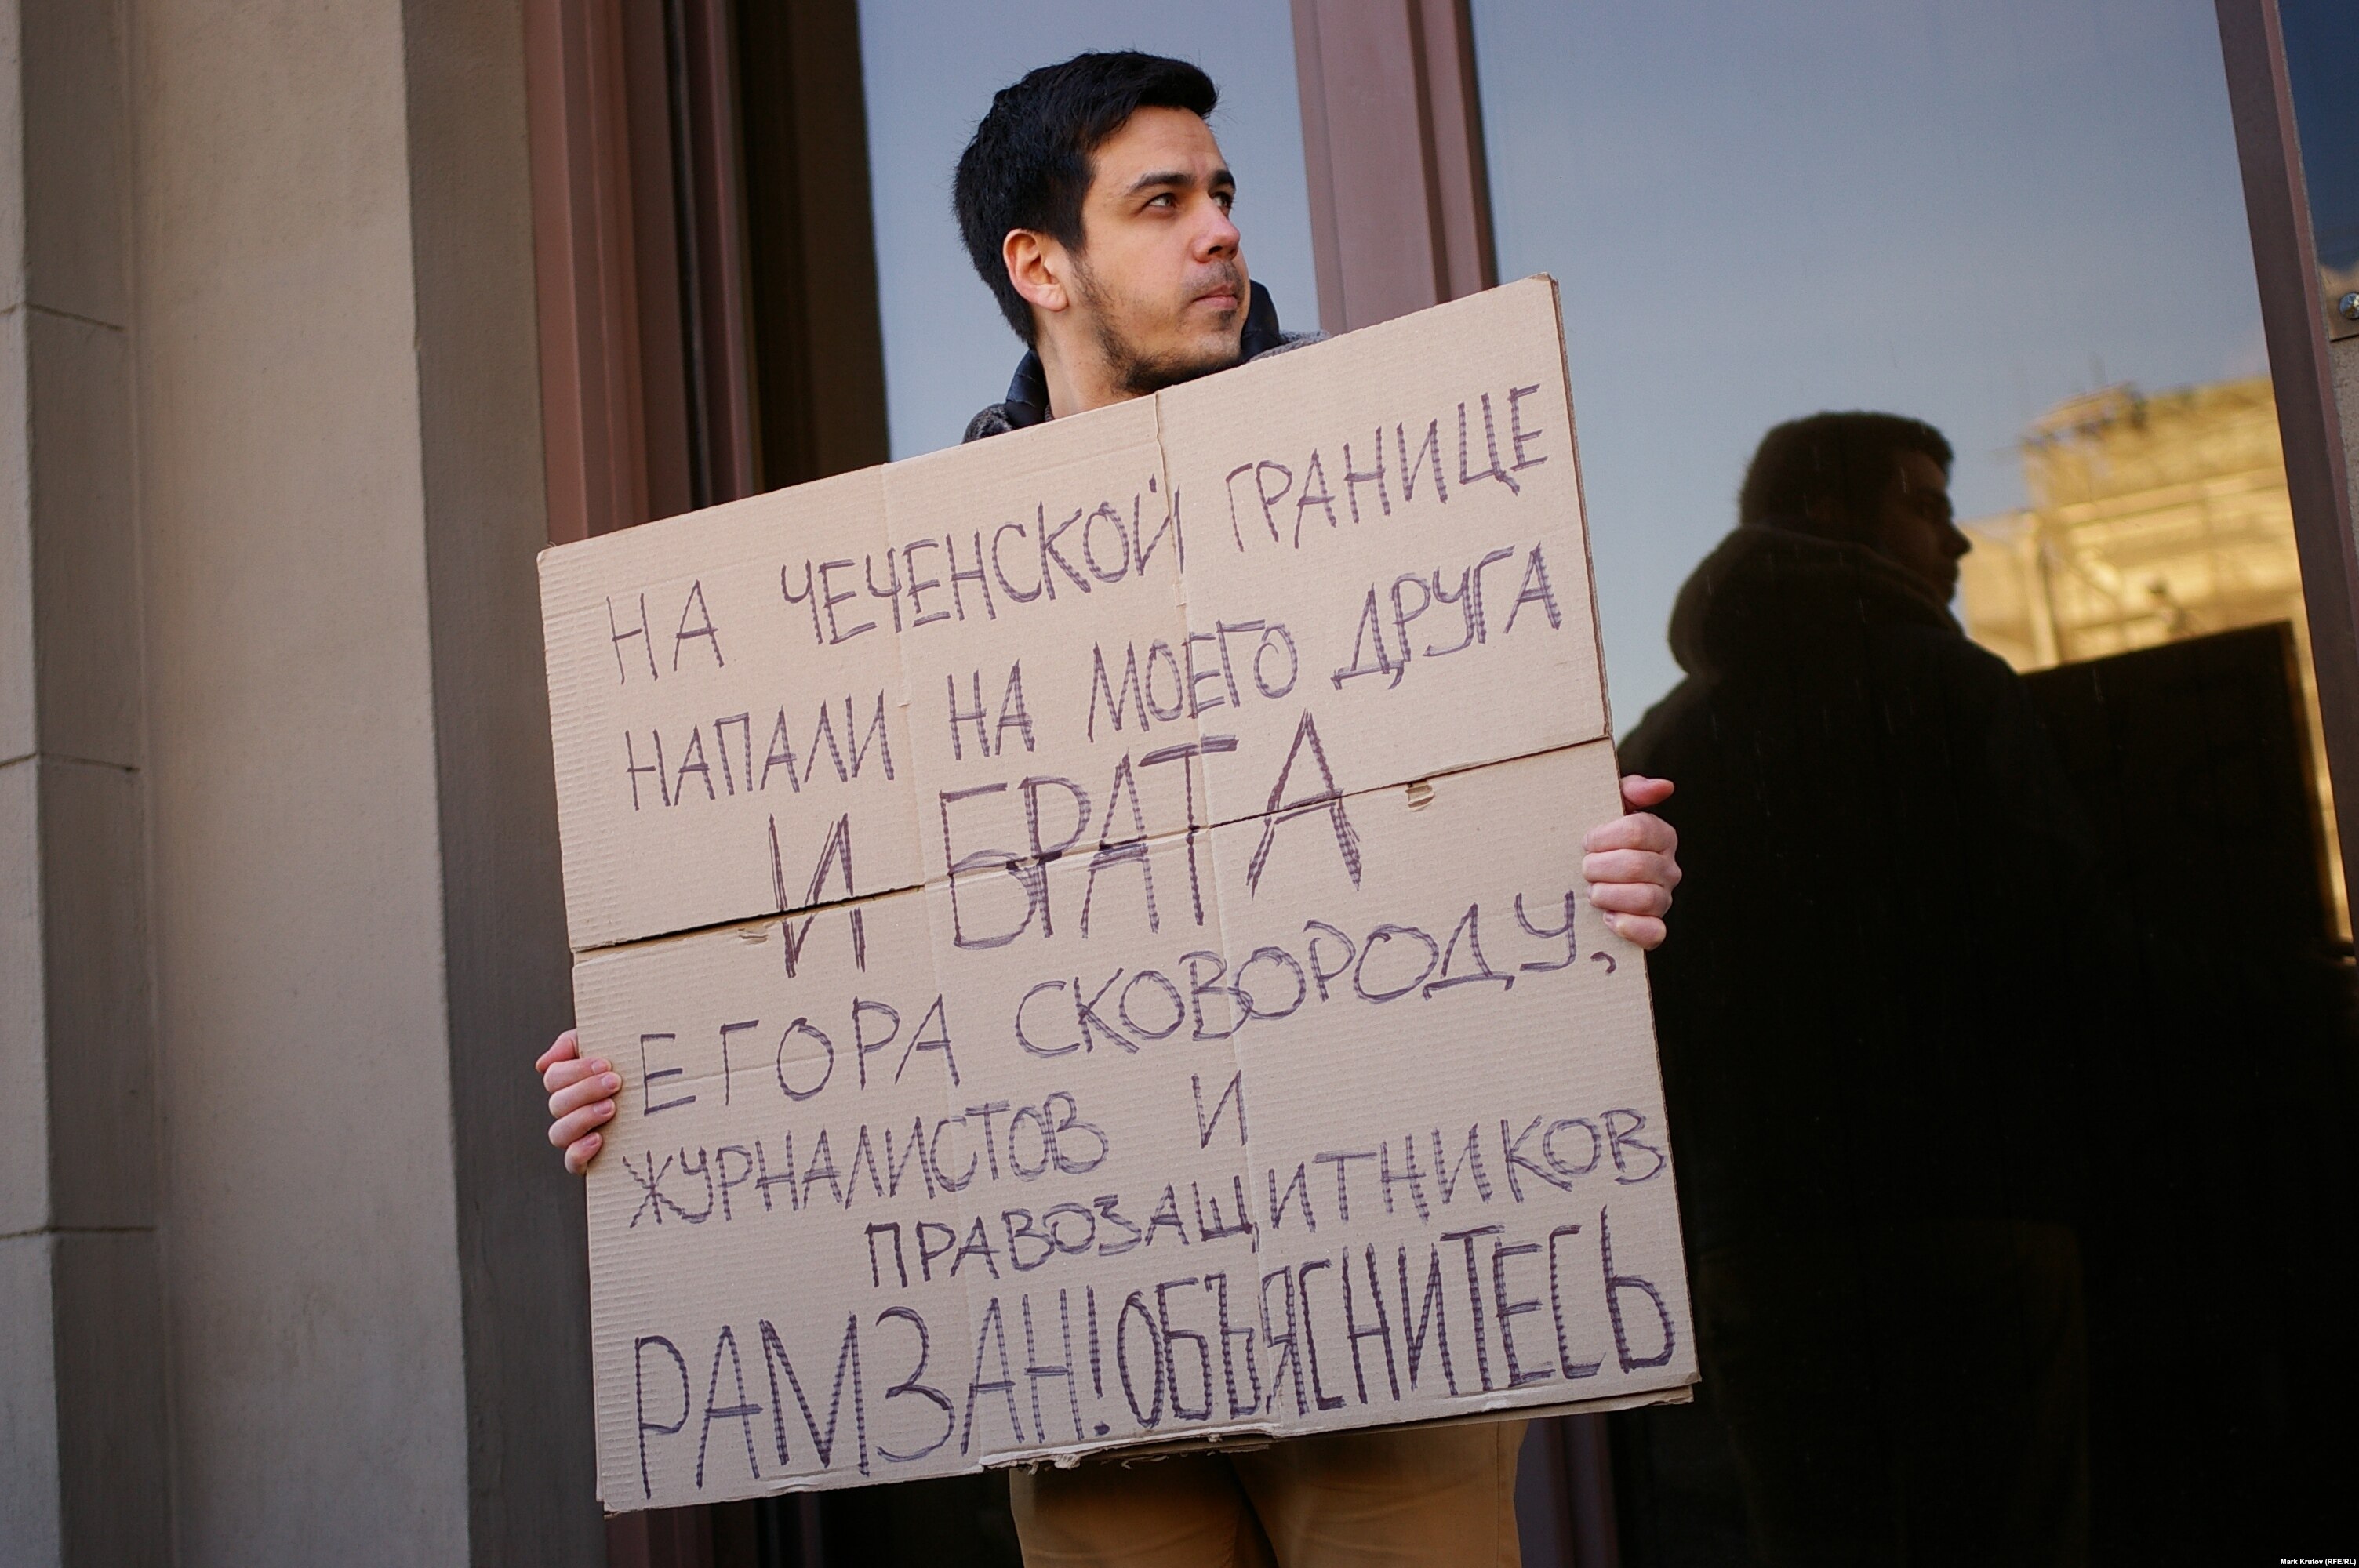 НА ЧЕЧЕНСКОЙ ГРАНИЦЕ
НАПАЛИ НА МОЕГО ДРУГА
И БРАТА
ЕГОРА СКОВОРОДУ,
ЖУРНАЛИСТОВ И
ПРАВОЗАЩИТНИКОВ
РАМЗАН! ОБЪЯСНИТЕСЬ
Mark Krutov (RFE/RL)